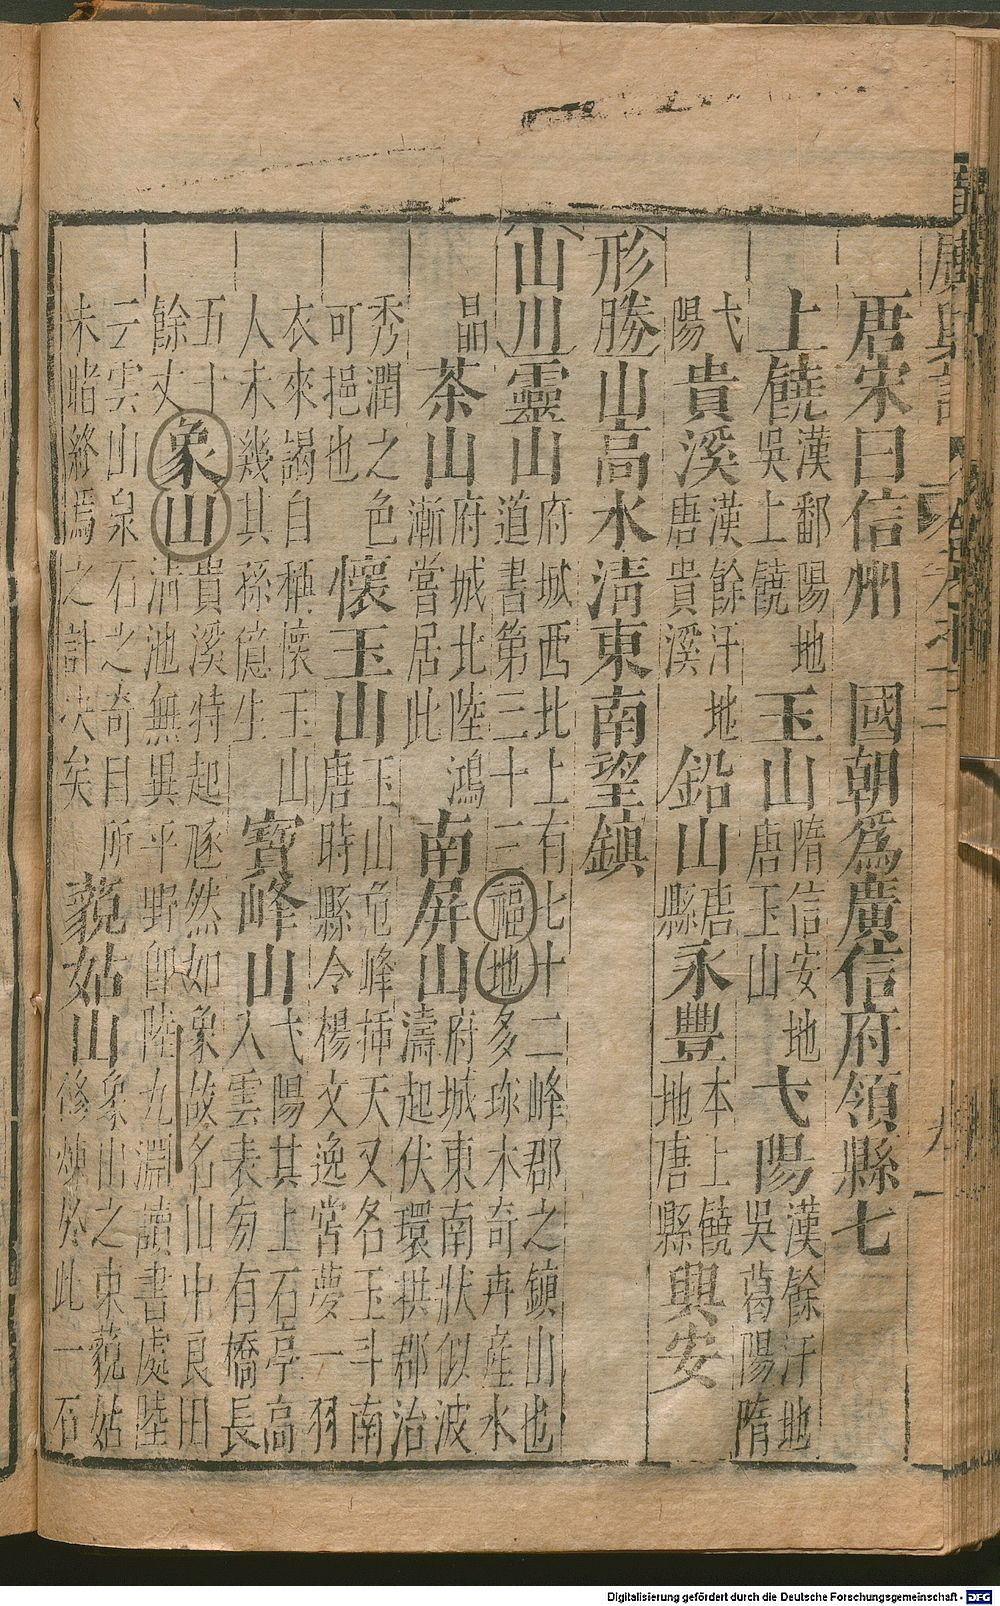 唐宋曰信州 國朝為廣信府領縣七
上饒 漢鄱陽地
吳上饒
玉山 隋信安地
唐玉山
弋陽 漢餘汗地
吳葛陽隋
弋
陽
貴溪 漢餘汗地
唐貴溪
鉛山 唐
縣
永豐 本上饒
地唐縣
興安
形勝 山高水清東南望鎮
山川 靈山 府城西北上有七十二峰郡之鎮山也
道書第三十三福地多珍木奇卉產水
晶
茶山 府城北陸鴻
漸嘗居此
南屏山 府城東南狀似波
濤起伏環拱郡治
秀潤之色
可挹也
懷玉山 玉山危峰插天又名玉斗南
唐時縣令楊文逸嘗夢一羽
衣來謁自稱懷玉山
人未幾其孫億生
寶峰山 弋陽其上石亭高
入雲表旁有橋長
五十
餘丈
象山 貴溪特起逐然如象故名山中良田
清池無異平野即陸九淵讀書處陸
云雲山泉石之奇目所
未睹終焉之計決矣
藐姑山 象山之東藐姑
修煉於此一石
Digitalisierung gefördert durch die Deutsche Forschungsgemeinschaft - DFG